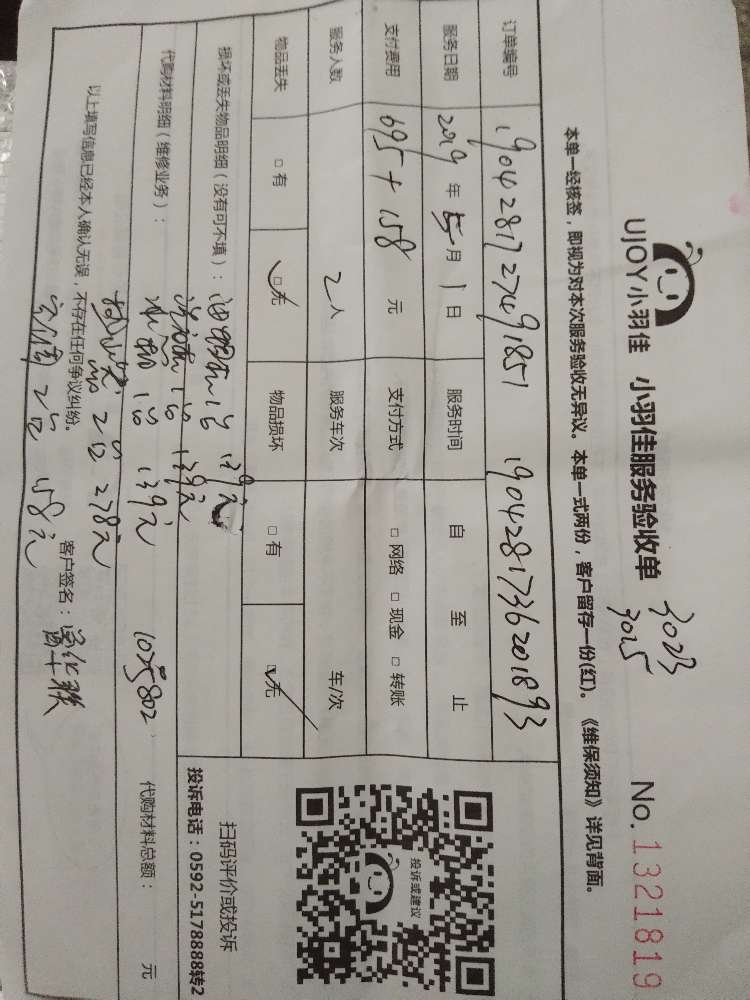 UJOY小羽佳 小羽佳服务验收单
3023
3015
No. 1321819
本单一经核签，即视为对本次服务验收无异议。本单一式两份，客户留存一份(红)。《维保须知》详见背面。
订单编号 1904281727491851 1904281736201893
服务日期 2019 年 5 月 1 日 服务时间 自 至 止
支付费用 695+158 元 支付方式 □ 网络 □ 现金 □ 转账
服务人数 2 人 服务车次 车/次
物品丢失 □ 有 ☑ 无 物品损坏 □ 有 ☑ 无
投诉或建议
扫码评价或投诉
投诉电话：0592-5178888转2
损坏或丢失物品明细（没有可不填）： 油烟机1台 139元
洗衣机1台 139元
代购材料明细（维修业务）： 冰箱1台 139元 1025802 代购材料总额： 元
2台 278元
以上填写信息已经本人确认无误，不存在任何争议纠纷。
2台 158元
客户签名：